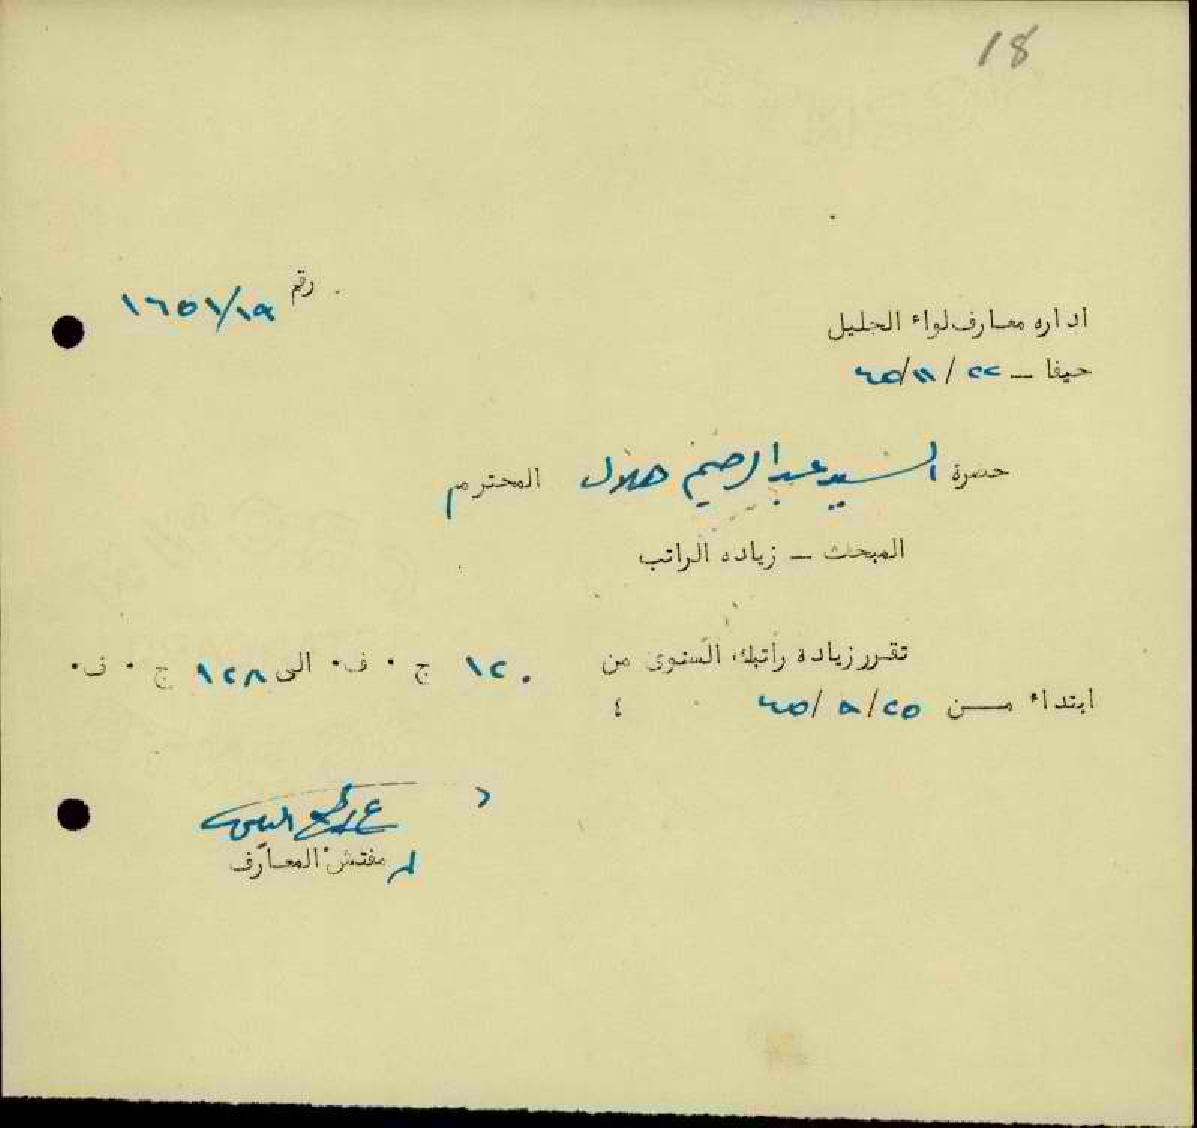 18
رقم ١٦٥١/١٩
اداره معارف لواء الجليل
حيفا — ٢٢ / ١١/ ٤٥
حضرة السيد عبد الرحيم هلال المحترم
المبحث — زياده الراتب
تقرر زيادة راتبك السنوى من ١٢٠ ج ٠ ف٠ الى ١٢٨ ج ٠ ف٠
ابتداء من ٢٥/ ٩ /٤٥ ؛
مفتش المعارف